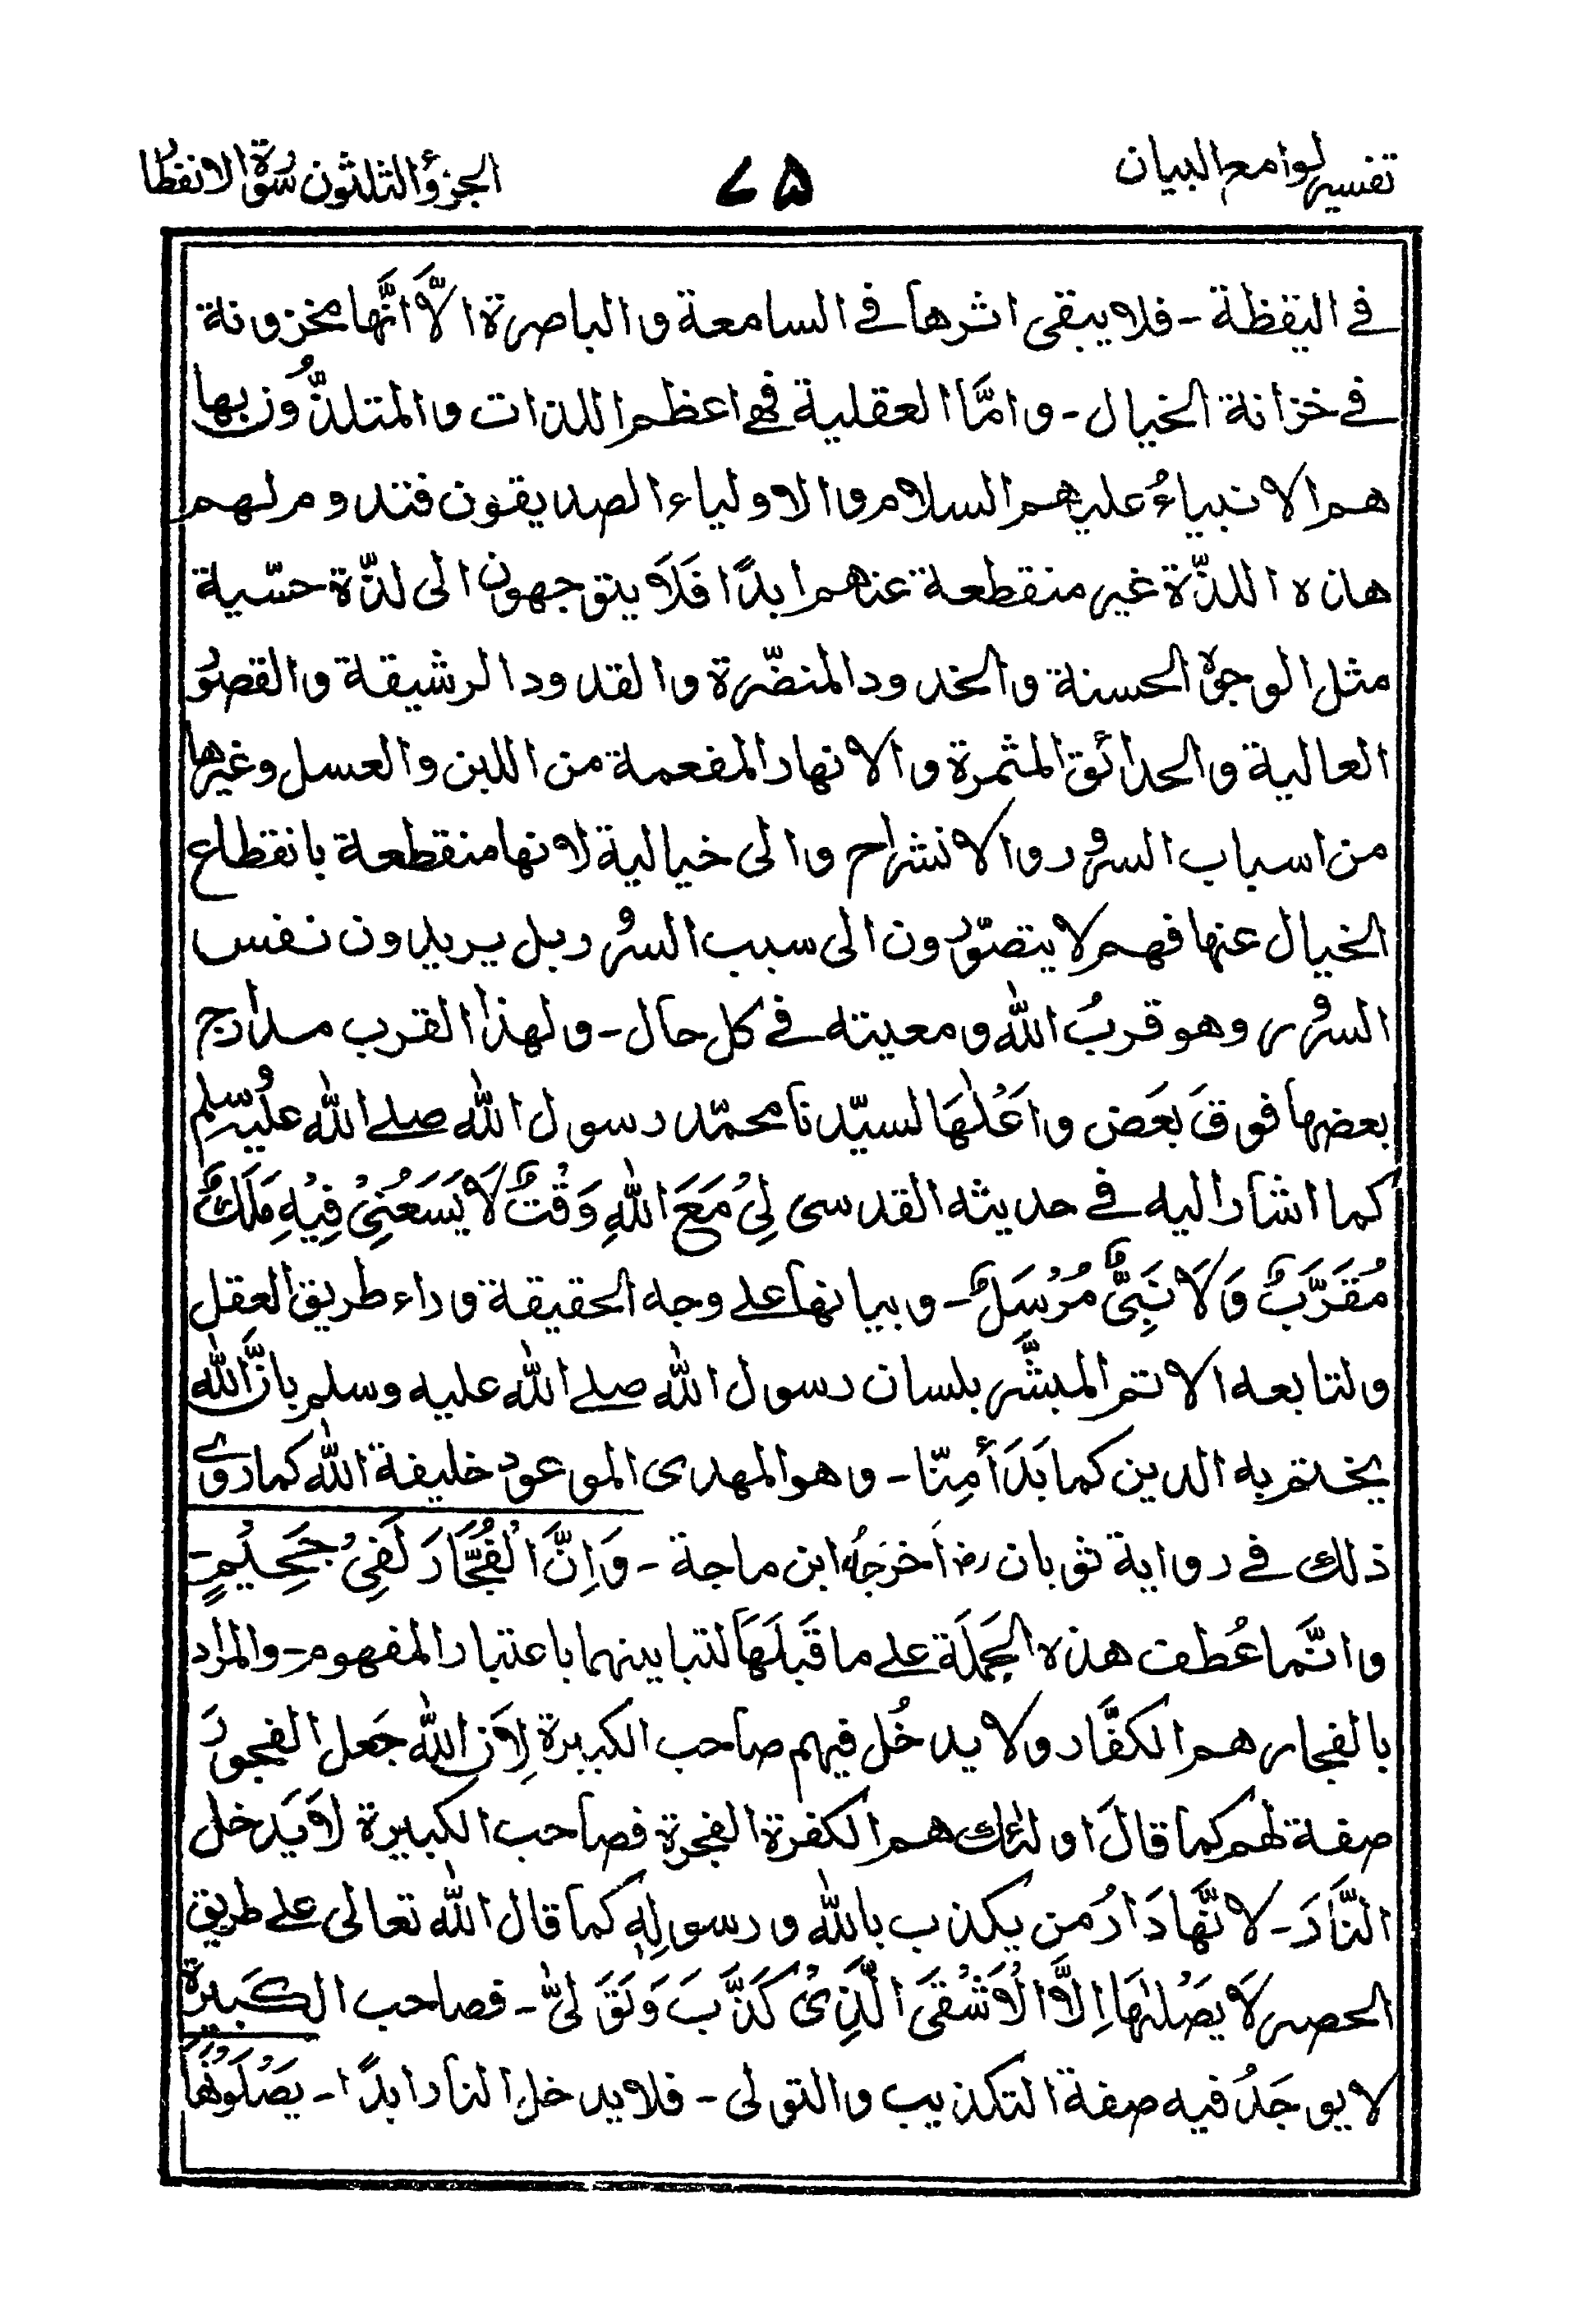 تفسير لوامع البيان ٧۵ الجزؤ الثلثون سورة الانفطار
فى اليقظة - فلا يبقى اثرها فى السامعة والباصرة الَّا انَّها مخزونة
فى خزانة الخيال - وامَّا العقلية فهى اعظم اللذات والمتلذُّوز بها
هم الانبياءُ عليهم السلام والاولياء الصديقون فتدوم لهم
هاذه اللذّة غير منقطعة عنهم ابدًا فَلَا يتوجهون الى لذّة حسّية
مثل الوجوه الحسنة والخدود المنضّرة والقدود الرشيقة والقصور
العالية والحدائق المثمرة والانهار المفعمة من اللبن والعسل وغيرها
من اسباب السرور والانشراح والى خيالية لانها منقطعة بانقطاع
الخيال عنها فهم لا يتصوّرون الى سبب السرور بل يريدون نفس
السرور وهو قربُ الله ومعيته فى كل حال - ولهذا القرب مدارج
بعضها فوقَ بعَض واَعْلٰهَا لسيّدنا محمّد رسول الله صلى الله عليه وسلم
كما اشار اليه فى حديثه القدسى لِىْ مَعَ اللهِ وَقْتٌ لَا يَسَعُنِىْ فِيْهِ مَلَكٌ
مُقَرَّبٌ وَلَا نَبِىٌّ مُرْسَلٌ - وبيانها على وجه الحقيقة وراء طريق العقل
ولتابعه الاتم المبشَّر بلسان رسول الله صلى الله عليه وسلم بانَّ الله
يختم به الدين كما بَدَأَ مِنّا - وهو المهدى الموعود خليفة الله كما روى
ذلك فى رواية ثوبان رض اَخرَجهُ ابن ماجة - وَاِنَّ الْفُجَّارَ لَفِىْ جَحِيْمٍ -
وانّما عُطف هذه الجملَة على ما قَبلَهَا لتباينهما باعتبار المفهوم - والمراد
بالفجار هم الكفَّار ولا يدخُل فيهم صاحب الكبيرة لِاَنَّ الله جَعل الفجورَ
صفة لهم كما قالَ اولئك هم الكفرة الفجرة فصاحب الكبيرة لاَ يَدخل
النَّارَ - لانَّها دَارُ من يكذب بالله ورسولِهٖ كما قال الله تعالى على طريق
الحصر لَا يَصْلٰهَا اِلَّا الْاَشْقَى الَّذِىْ كَذَّبَ وَتَوَلّٰى - فصاحب الكَبيرة
لا يوجَدُ فيه صفة التكذيب والتولى - فلا يدخل النار ابدًا - يَصْلَوْنَهَا